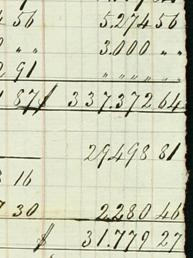 56 5.274 56
" " 3.000 " "
91 " " " " " "
87 $ 337.372 64
29498 81
16
30 2.280 46
$ 31.779 27